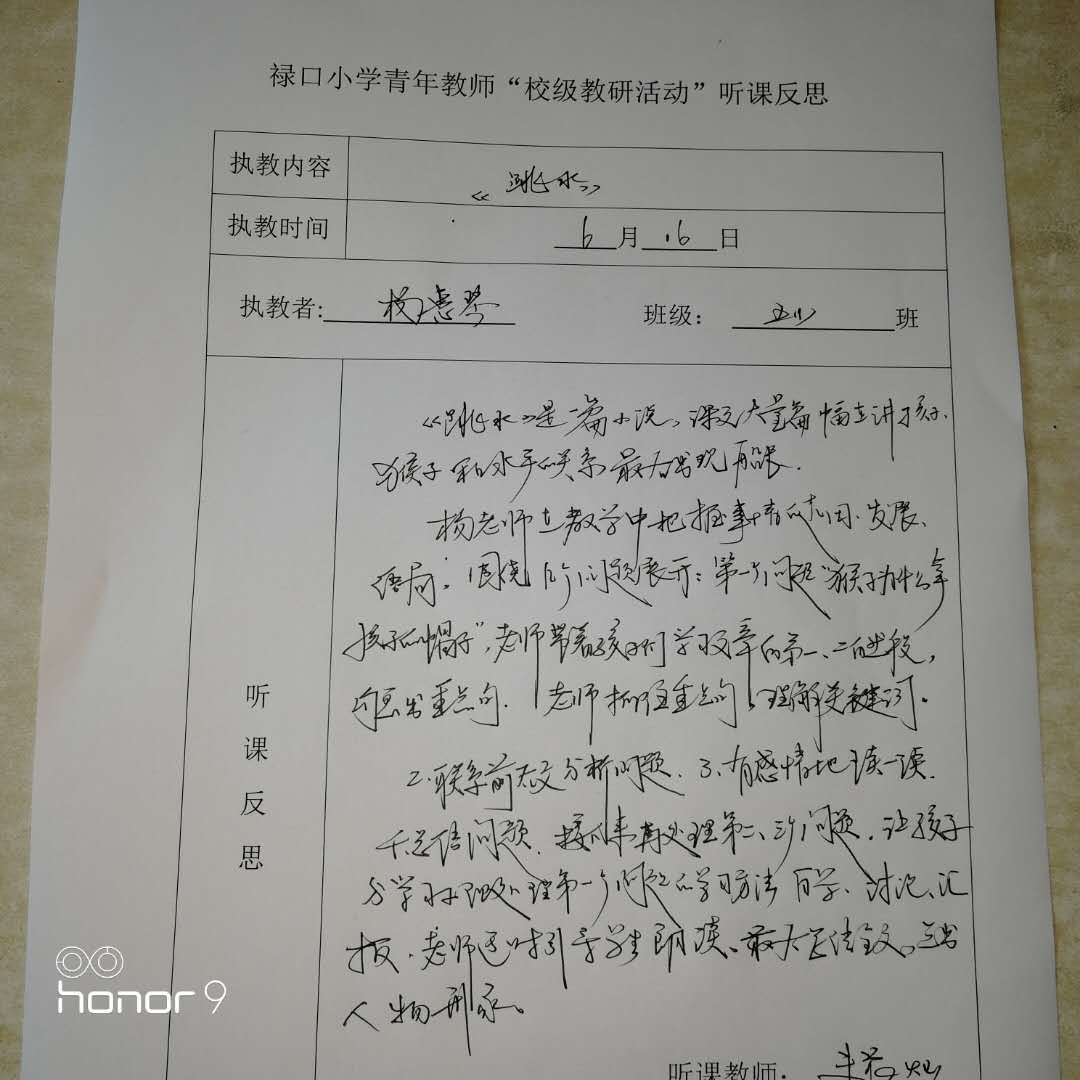 禄口小学青年教师“校级教研活动”听课反思
执教内容 《跳水》
执教时间 6月16日
执教者: 杨惠琴 班级: 五(1) 班
听课反思
《跳水》是一篇小说,课文大量篇幅在讲了孩子、
猴子和水手的关系最后出现船长.
杨老师在教学中把握事情的起因、发展、
结局。围绕个问题展开:第一个问题“猴子为什么拿
孩子的帽子”,老师带着孩子们学习文章的第一、二自然段,
勾画出重点句. 老师抓住重点句、理解关键词。
2.联系前后文分析问题. 3、有感情地读一读.
4.总结问题. 接下来再处理第二、三个问题,让孩子
学习的第一个问题的学习方法自学、讨论、汇
报.老师适时引导学生朗读、最后总结全文。
人物形象。
听课教师:
honor 9